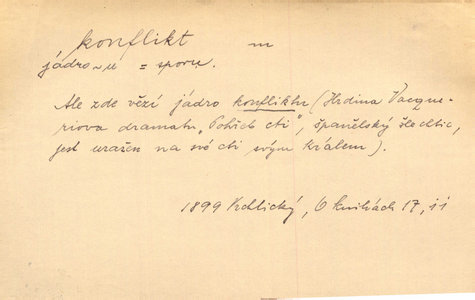 konflikt m
jádro ~u = sporu.
Ale zde vězí jádro konfliktu (Hrdina Vacque-
riova dramatu „Pohřeb cti", španělský šlechtic,
jest uražen na své cti svým králem).
1899 Vrchlický, O knihách 17, ii